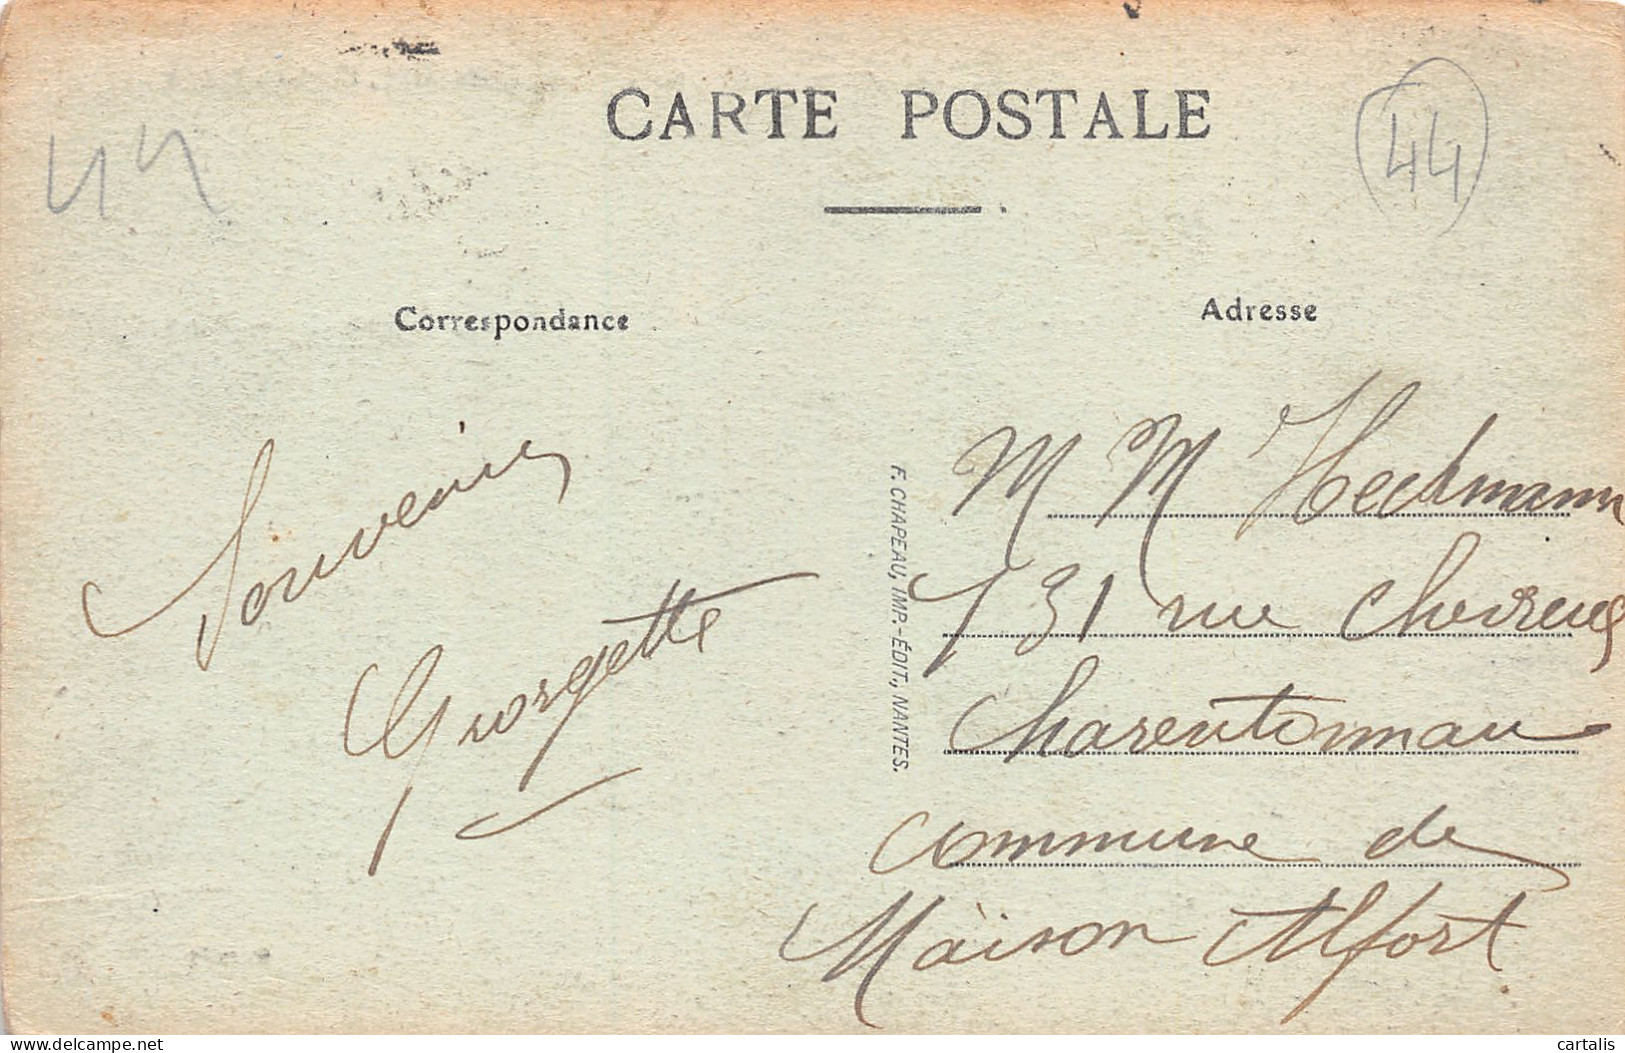 CARTE POSTALE
44
44
Correspondance
Adresse
Souvenir
Georgette
F. CHAPEAU, IMP.-ÉDIT., NANTES.
M M Heckmann
131 rue Chevreul
Charentonneau
commune de
Maison Alfort
www.delcampe.net
cartalis